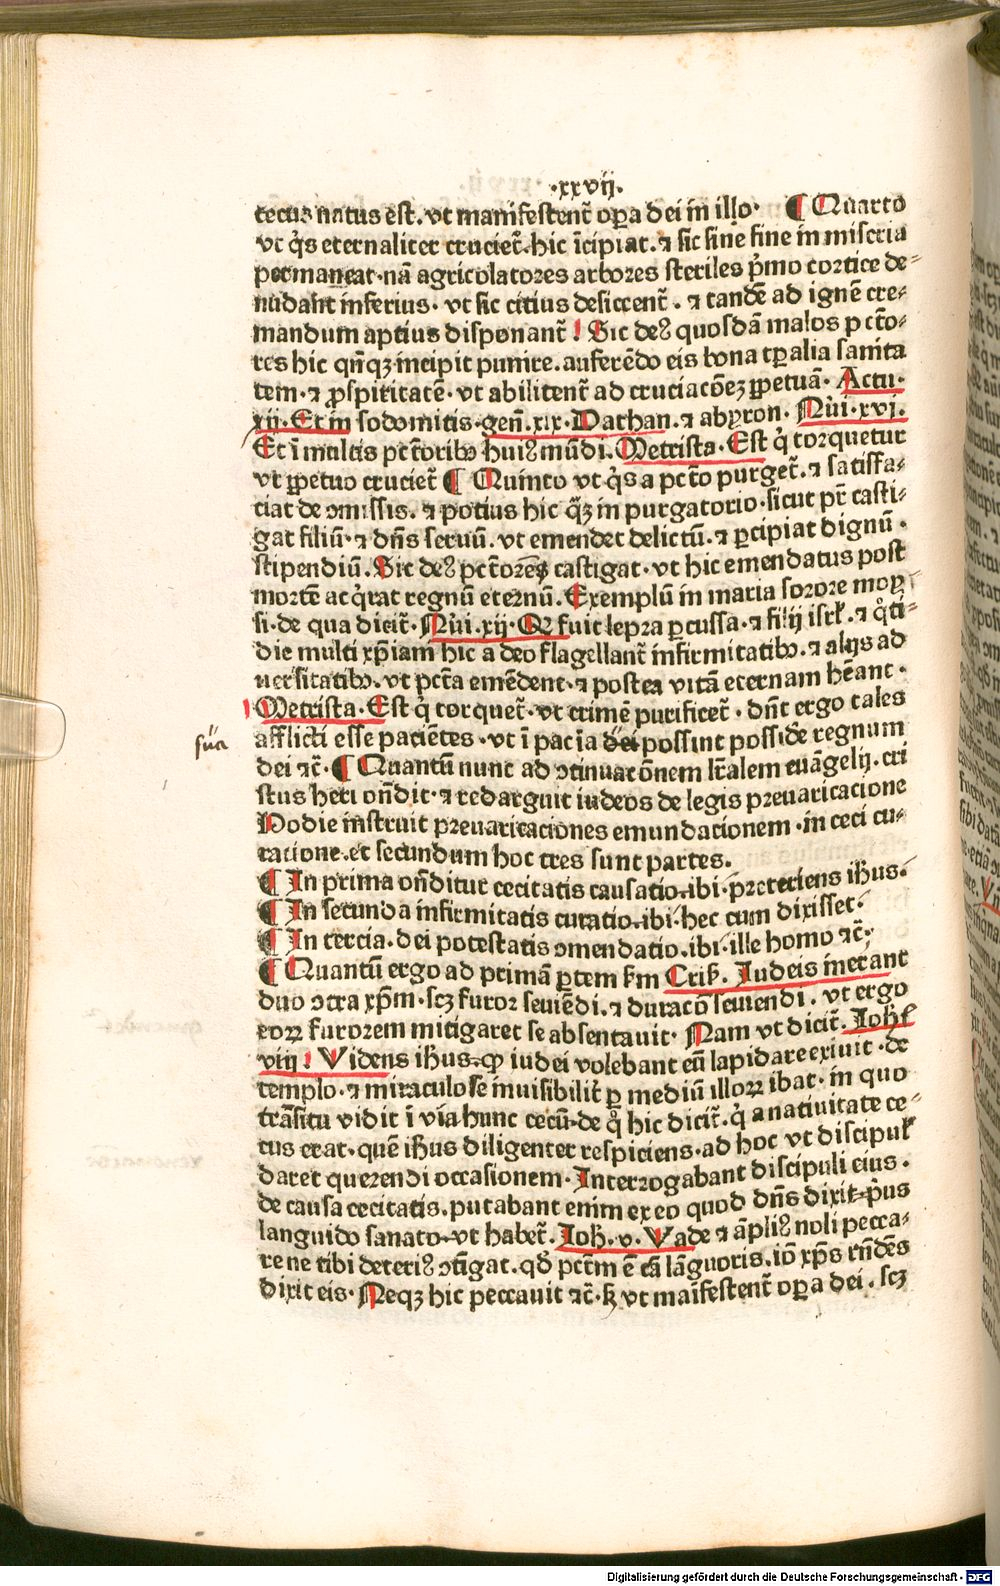 ·xxvij.
cecus natus est. vt manifestent̃ oꝑa dei in illo· ¶ Quarto
vt q̃s eternaliter cruciet̃. hic ĩcipiat. ⁊ sic sine fine in miseria
permaneat·nã agricolatores arbores steriles p̃mo cortice de⸗
nudant inferius· vt sic citius desiccent̃. ⁊ tandẽ ad ignẽ cre⸗
mandum aptius disponant̃! Sic deꝰ quosdã malos pctõ⸗
res hic qñqꝫ incipit punire. auferẽdo eis bona tꝑalia sanita
tem·⁊ ꝓspiritatẽ· vt abilitent̃ ad cruciacõeꝫ ꝑpetuã· Actu·
xij. Et in sodomitis·geñ.xix. Dathan. ⁊ abyron. Nũi·xvi.
Et ĩ multis pctõribꝰ huiꝰ mũdi. Metrista. Est q̃ torquetur
vt ꝑpetuo cruciet̃ ¶ Quinto vt q̃s a pctõ purget̃. ⁊ satiffa⸗
ciat de ↄmissis. ⁊ potius hic q̃ꝫ in purgatorio·sicut pr̃ casti⸗
gat filiũ·⁊ dñs seruũ. vt emendet delictũ.⁊ ꝑcipiat dignũ·
stipendiũ. Sic deꝰ pctõres castigat·vt hic emendatus post
mortẽ acq̃rat regnũ eternũ. Exemplũ in maria sorore moy
si·de qua dicit̃·Nũi.xij·Qꝛ fuit lepra ꝑcussa·⁊ filij isrl̃.⁊ q̊ti⸗
die multi xp̃iani hic a deo flagellant̃ infirmitatibꝰ.⁊ alijs ad
uersitatibꝰ.vt pctã emẽdent·⁊ postea vitã eternam hẽant·
Metrista·Est q̃ torquet̃·vt crimẽ purificet̃·dñt ergo tales
süa
afflicti esse paciẽtes·vt ĩ paciã dei possint possidẽ regnum
dei ⁊c̃·¶ Quantũ nunc ad ↄtinuatõnem lr̃alem euãgelij.cri
stus heri on̄dit·⁊ redarguit iudeos de legis preuaricacione
Hodie instruit preuaricaciones emundacionem·in ceci cu⸗
ratione.et secundum hoc tres sunt partes.
¶ In prima on̄ditur cecitatis causatio.ibi·preteriens ih̃us·
¶ In secunda infirmitatis curatio.ibi·hec cum dixisset·
¶ In tercia·dei potestatis ↄmendatio.ibi·ille homo ⁊c̃·
¶ Quantũ ergo ad primã ꝑtem km̃ Criß. Iudeis inerant
duo ↄtra xp̃m·scꝫ furor seuiẽdi.⁊ duratõ seuiendi. vt ergo
eorꝝ furorem mitigaret se absentauit· Nam vt dicit̃. Ioh̃ß
viij! Videns ih̃us·ꝙ iudei volebant eũ lapidare exiuit·de
templo·⁊ miraculose inuisibilit̃ ꝑ mediũ illorꝝ ibat·in quo
trãsitu vidit ĩ via hunc cecũ·de q̊ hic dicit̃.q̃ a natiuitate ce⸗
cus erat·quẽ ih̃us diligenter respiciens·ad hoc vt discipuł
daret querendi occasionem·Interrogabant discipuli eius·
de causa cecitatis.putabant enim ex eo quod dñs dixit p̃us
languido sanato·vt habet̃. Ioh̃. v. Vade ⁊ ãpliꝰ noli pecca⸗
re ne tibi deteriꝰ ↄtĩgat.qđ pctm̃ ẽ cã lãguoris.iõ xp̃s rn̄dẽs
dixit eis·Neqꝫ hic peccauit ⁊c̃·ß vt manifestent̃ oꝑa dei·scꝫ
Digitalisierung gefördert durch die Deutsche Forschungsgemeinschaft · DFG